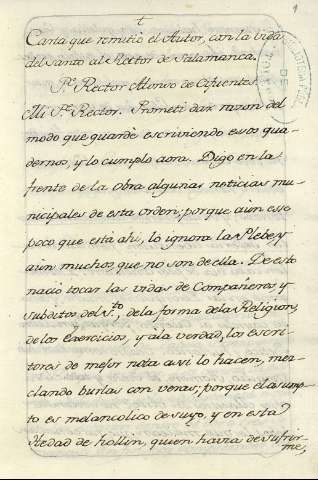 1
Carta que remitió el Autor, con la vida
del Santo al Rector de Salamanca.
Pe. Rector Alonso de Cifuentes.
Mi Pe. Rector. Prometi dar razon del
modo que guardè escriviendo esos qua-
dernos, y lo cumplo aora. Digo en la
frente de la obra algunas noticias mu-
nicipales de esta orden; porque aùn esso
poco que està ahi, lo ignora la Plebe, y
aùn muchos, que no son de ella. De esto
naciò tocar las vidas de Compañeros, y
subditos del Sto. de la forma de la Religion,
de los Exercicios, y à la verdad, los escri-
tores de mejor nota asi lo hacen, mez-
clando burlas con veras; porque el asump-
to es melancolico de suyo, y en esta
Hedad de hollin, quien havia de sufrir-
me,